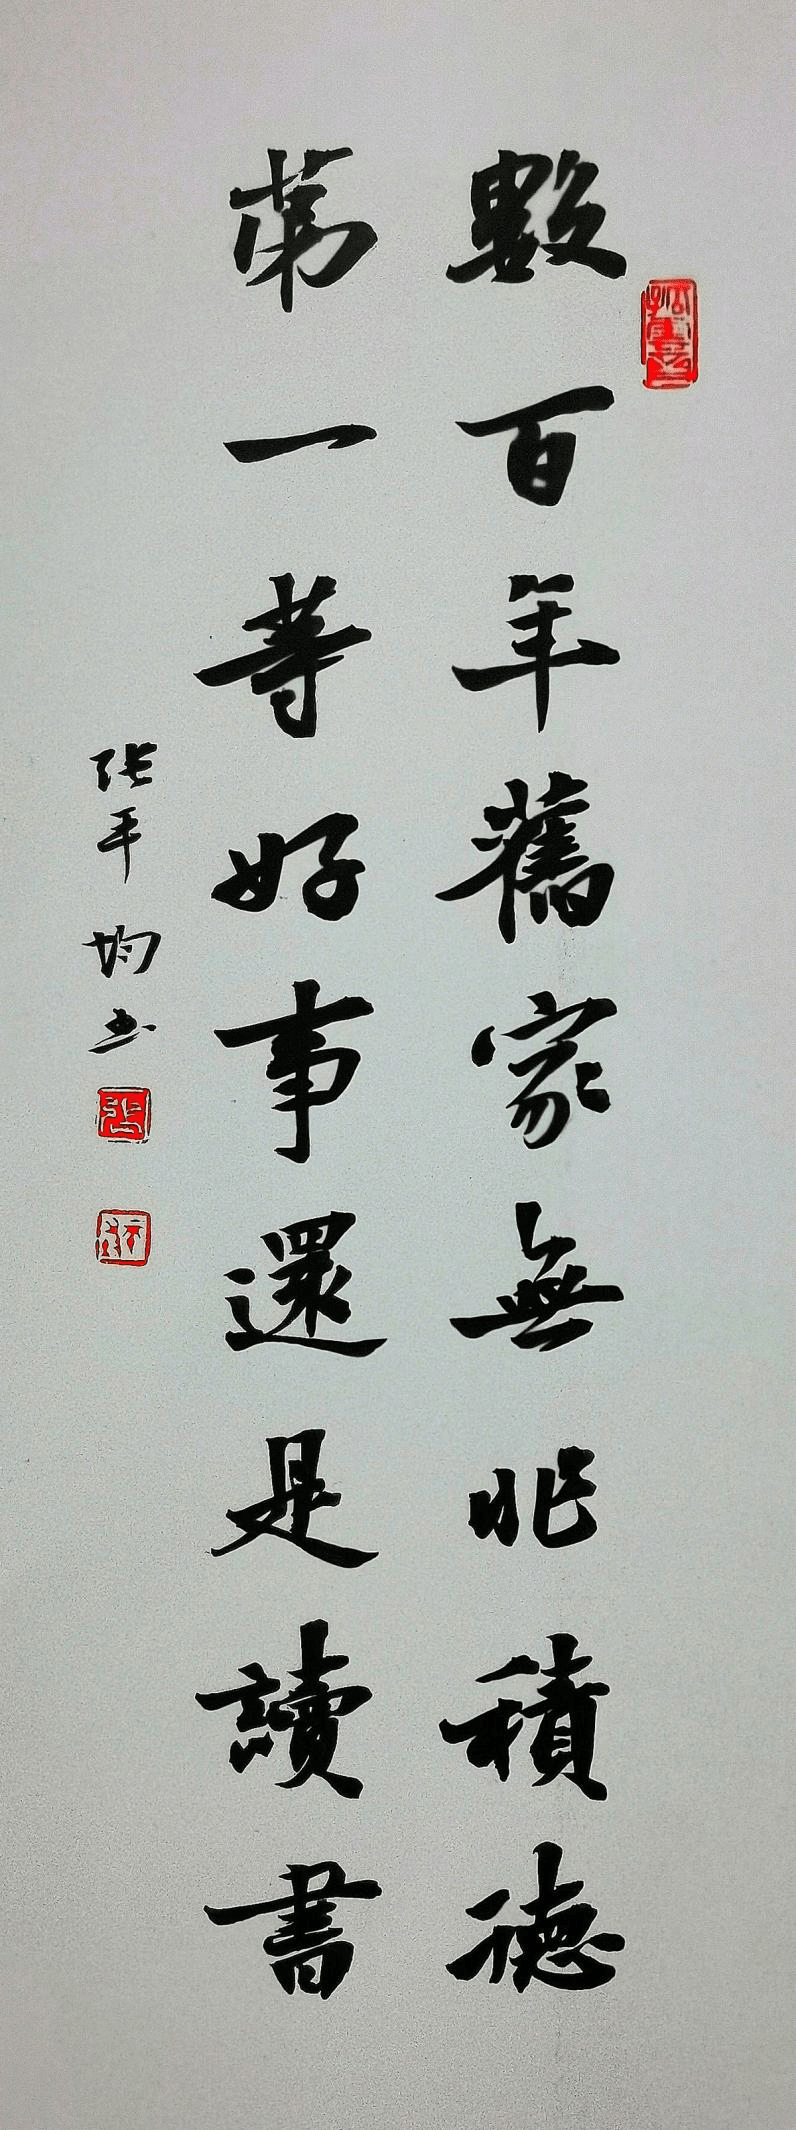 數百年舊家無非積德
第一等好事還是讀書
張平均书